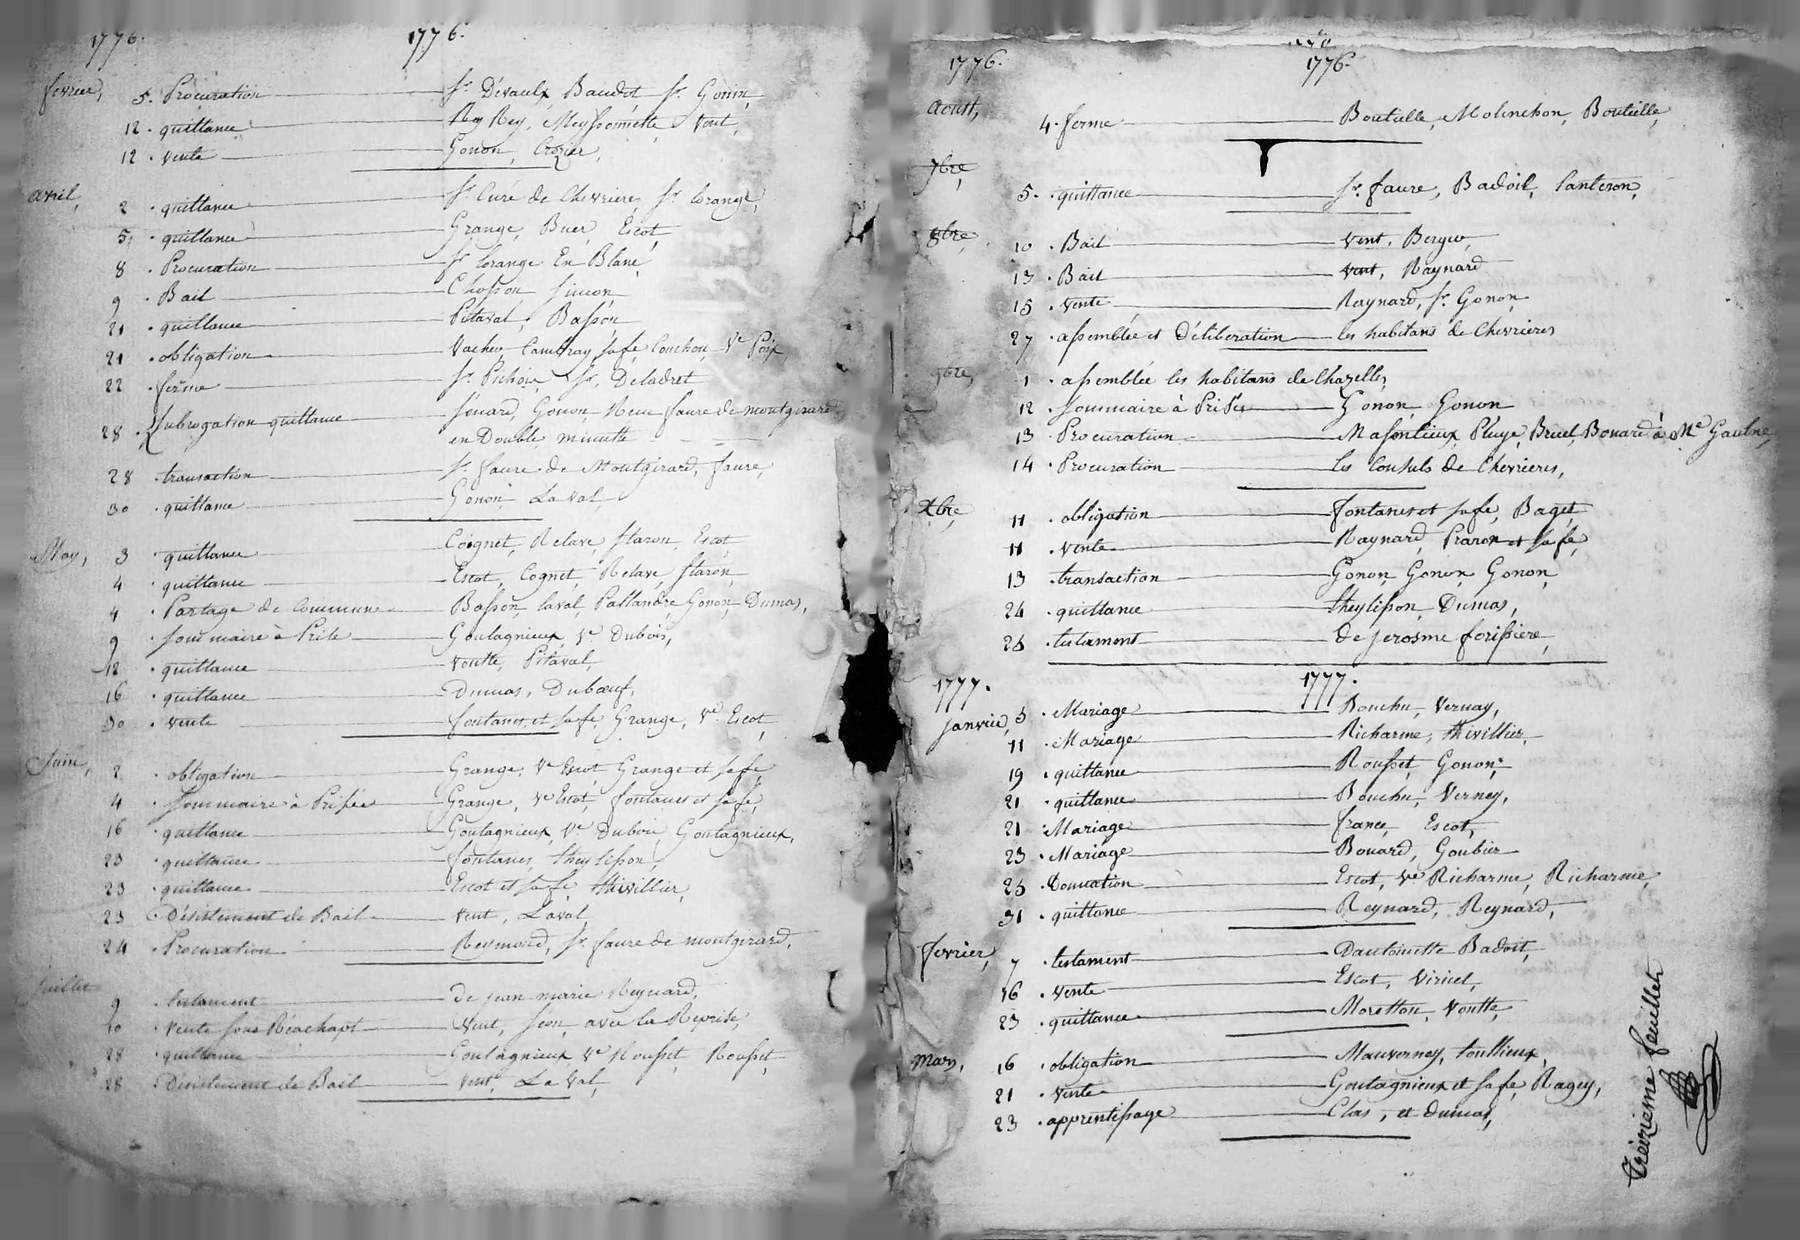 1776. 1776.
fevrier, 5. Procuration Sr. Dévaulx Baudot Sr. Gonin,
12. quittance Rey, Meyssonnette Vout,
12. vente Gonon, Crozier,
avril, 2. quittance Sr. Curé de Chevriere, Sr. Lorange,
5. quittance Grange, Buer, Escot,
8. Procuration Sr. Lorange En Blanc,
9. Bail Chosson Simon
21. quittance Pitaval, Basson,
21. obligation Vacher Cambray sa fe. Couchou Ve.
22. ferme Sr. Pichon, Sr. Deladret
28. Subrogation quittance Gonon, faure de montgirard
en Double minutte
28. transaction Sr. faure de Montgirard, faure,
30. quittance Gonon Laval,
May, 3. quittance Coignet, Relave, Staron, Escot
4. quittance Escot, Cognet, Relave, Staron,
4. Partage de Commune Basson, laval, Pallandre Gonon Dumas,
9. Sommaire à Prise Goutagnieux, Ve. Dubois,
12. quittance Voutte, Pitaval,
16. quittance Dumas, Dubœuf,
30. vente fontanes, et sa fe, Grange, Ve. Escot,
Juin, 2. obligation Grange, Ve Escot, Grange et sa fe,
4. Sommaire à Prisée Grange, Ve Escot, fontanes et sa fe,
16. quittance Goutagnieux, Ve. Dubois, Goutagnieux,
23. quittance fontanes, theylisson,
23. quittance Escot et sa fe, thivillier,
23. Désistement de Bail Vent, Laval,
24. Procuration Reymond, Sr. faure de montgirard,
Juillet 9. testament de jean marie Reynard,
10. Vente sous Réachapt Vent, Séon, avec la Reprise,
28. quittance Goutagnieux Ve Rousset, Rousset,
28. Désistement de Bail Vent, Laval,
1776. 1776.
aoust, 4. ferme Bouteille, Molinchon, Bouteille,
7bre, 5. quittance Sr. faure, Badoil, Panteron,
8bre, 10. Bail Vent, Berger,
13. Bail Vent, Raynard
15. vente Raynard, Sr. Gonon,
27. assemblée et Déliberation les habitans de Chevrieres
9bre, 1. assemblée les habitans de Chazelles,
12. Sommaire à Prisée Gonon, Gonon,
13. Procuration Masontieux, Pluye, Bruel, Bonard à Me
14. Procuration les Consuls de Chevrieres,
Xbre, 11. obligation fontanes et sa fe, Baget
11. vente Raynard, Praron et sa fe,
13. transaction Gonon, Gonon, Gonon,
24. quittance theylisson, Dumas,
25. testament de jerosme forissiere,
1777. 1777.
janvier, 5. Mariage Bouchu, Vernay,
11. Mariage Richarme, thivillier,
19. quittance Rousset, Gonon,
21. quittance Bouchu, Verney,
21. Mariage france, Escot,
23. Mariage Bonard, Goubier
25. Donnation Escot, Ve Richarme, Richarme,
31. quittance Reynard, Reynard,
fevrier, 7. testament Dantoinette Badoit,
16. vente Escot, Viricel,
23. quittance Moretton, Voutte,
mars, 16. obligation Mauverney, toullieux,
21. vente Goutagnieux et sa fe, Ragey,
23. apprentissage Clas, et dumas,
treizieme feuillet